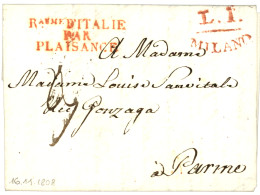 Raume D'ITALIE
PAR
PLAISANCE
L. I.
MILANO
A Madame
Madame Louise Sanvitale
née Gonzaga
à Parme
1808